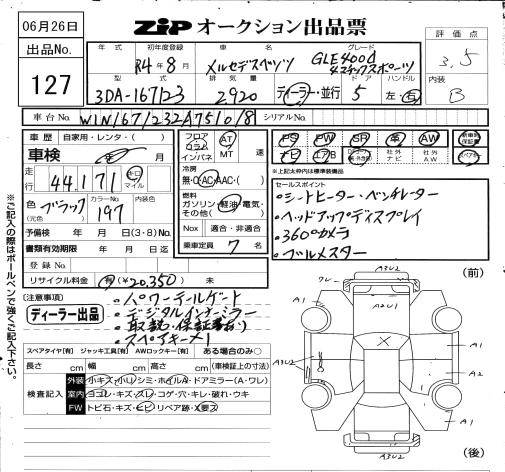 06月26日
ZiP オークション出品票
出品No.
127
年式 初年度登録 車名 グレード
R4年8月 メルセデスベンツ GLE400d 4マチックスポーツ
評価点 3.5
型式 排気量 ドア ハンドル
3DA-167123 2920 ディーラー・並行 5 左・右
内装 B
車台No. W1N1671232A751018 シリアルNo.
車歴 自家用・レンタ・( )
車検 年 月
走行 44,171 キロ マイル
色 (元色) ブラック カラーNo. 197 内装色
予備検 年 月 日(3・8)No.
書類有効期限 年 月 日迄
登録No.
リサイクル料金 有(¥20,350) 未
フロア コラム インパネ AT MT 速
冷房 無・C・AC・AAC・( )
燃料 ガソリン・軽油・電気・その他( )
Nox 適合・非適合
乗車定員 7 名
PS PW SR 革 AW 新車時保証書
ナビ エアB 社外ナビ 社外AW
★上記太枠内は標準装備品
セールスポイント
・シートヒーター・ベンチレーター
・ヘッドアップディスプレイ
・360°カメラ
・ブルメスター
(注意事項)
ディーラー出品
・パワーテールゲート
・デジタルインナーミラー
・取説・保証書有り
・スペアキー×1
スペアタイヤ[有] ジャッキ工具[有] AWロックキー[有] ある場合のみ○
長さ cm 幅 cm 高さ cm (車検証上の寸法)
検査記入
外装 小キズ・小凹・シミ・ホイルA・ドアミラー(A・ワレ)
室内 ヨゴレ・キズ・スレ・コゲ・穴・キレ・破れ・ウキ
FW トビ石・キズ・ヒビ・リペア跡・X要ス
※ご記入の際はボールペンで強くご記入下さい。
(前)
A3U2
A2U1
A1
A1
X
A3U2
A2
A1
A3U2
(後)